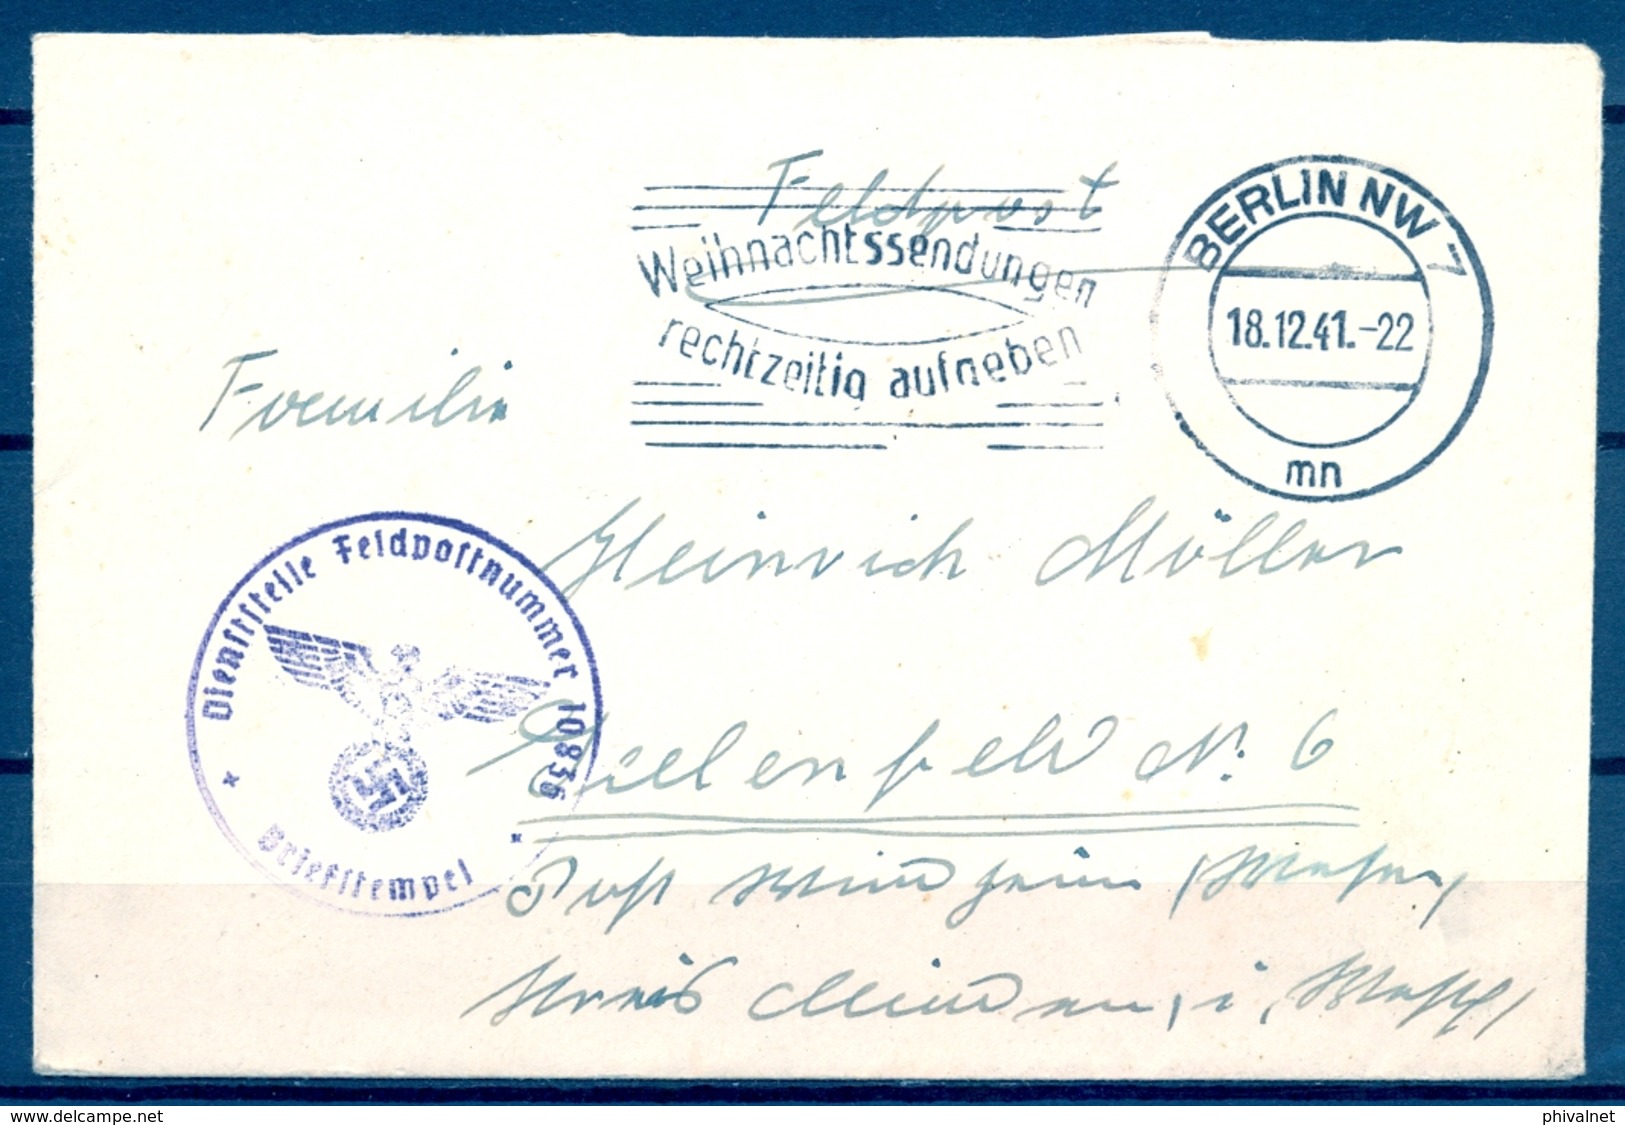 Feldpost
Weihnachtssendungen
rechtzeitig aufgeben
BERLIN NW 7
18.12.41.-22
mn
Familie
Heinrich Möller
Dienststelle Feldpostnummer 10836
Briefstempel
Bielenfeld Nr. 6
Post Windheim (Weser)
Kreis Minden, i. Westf.
delcampe.net
phivalnet